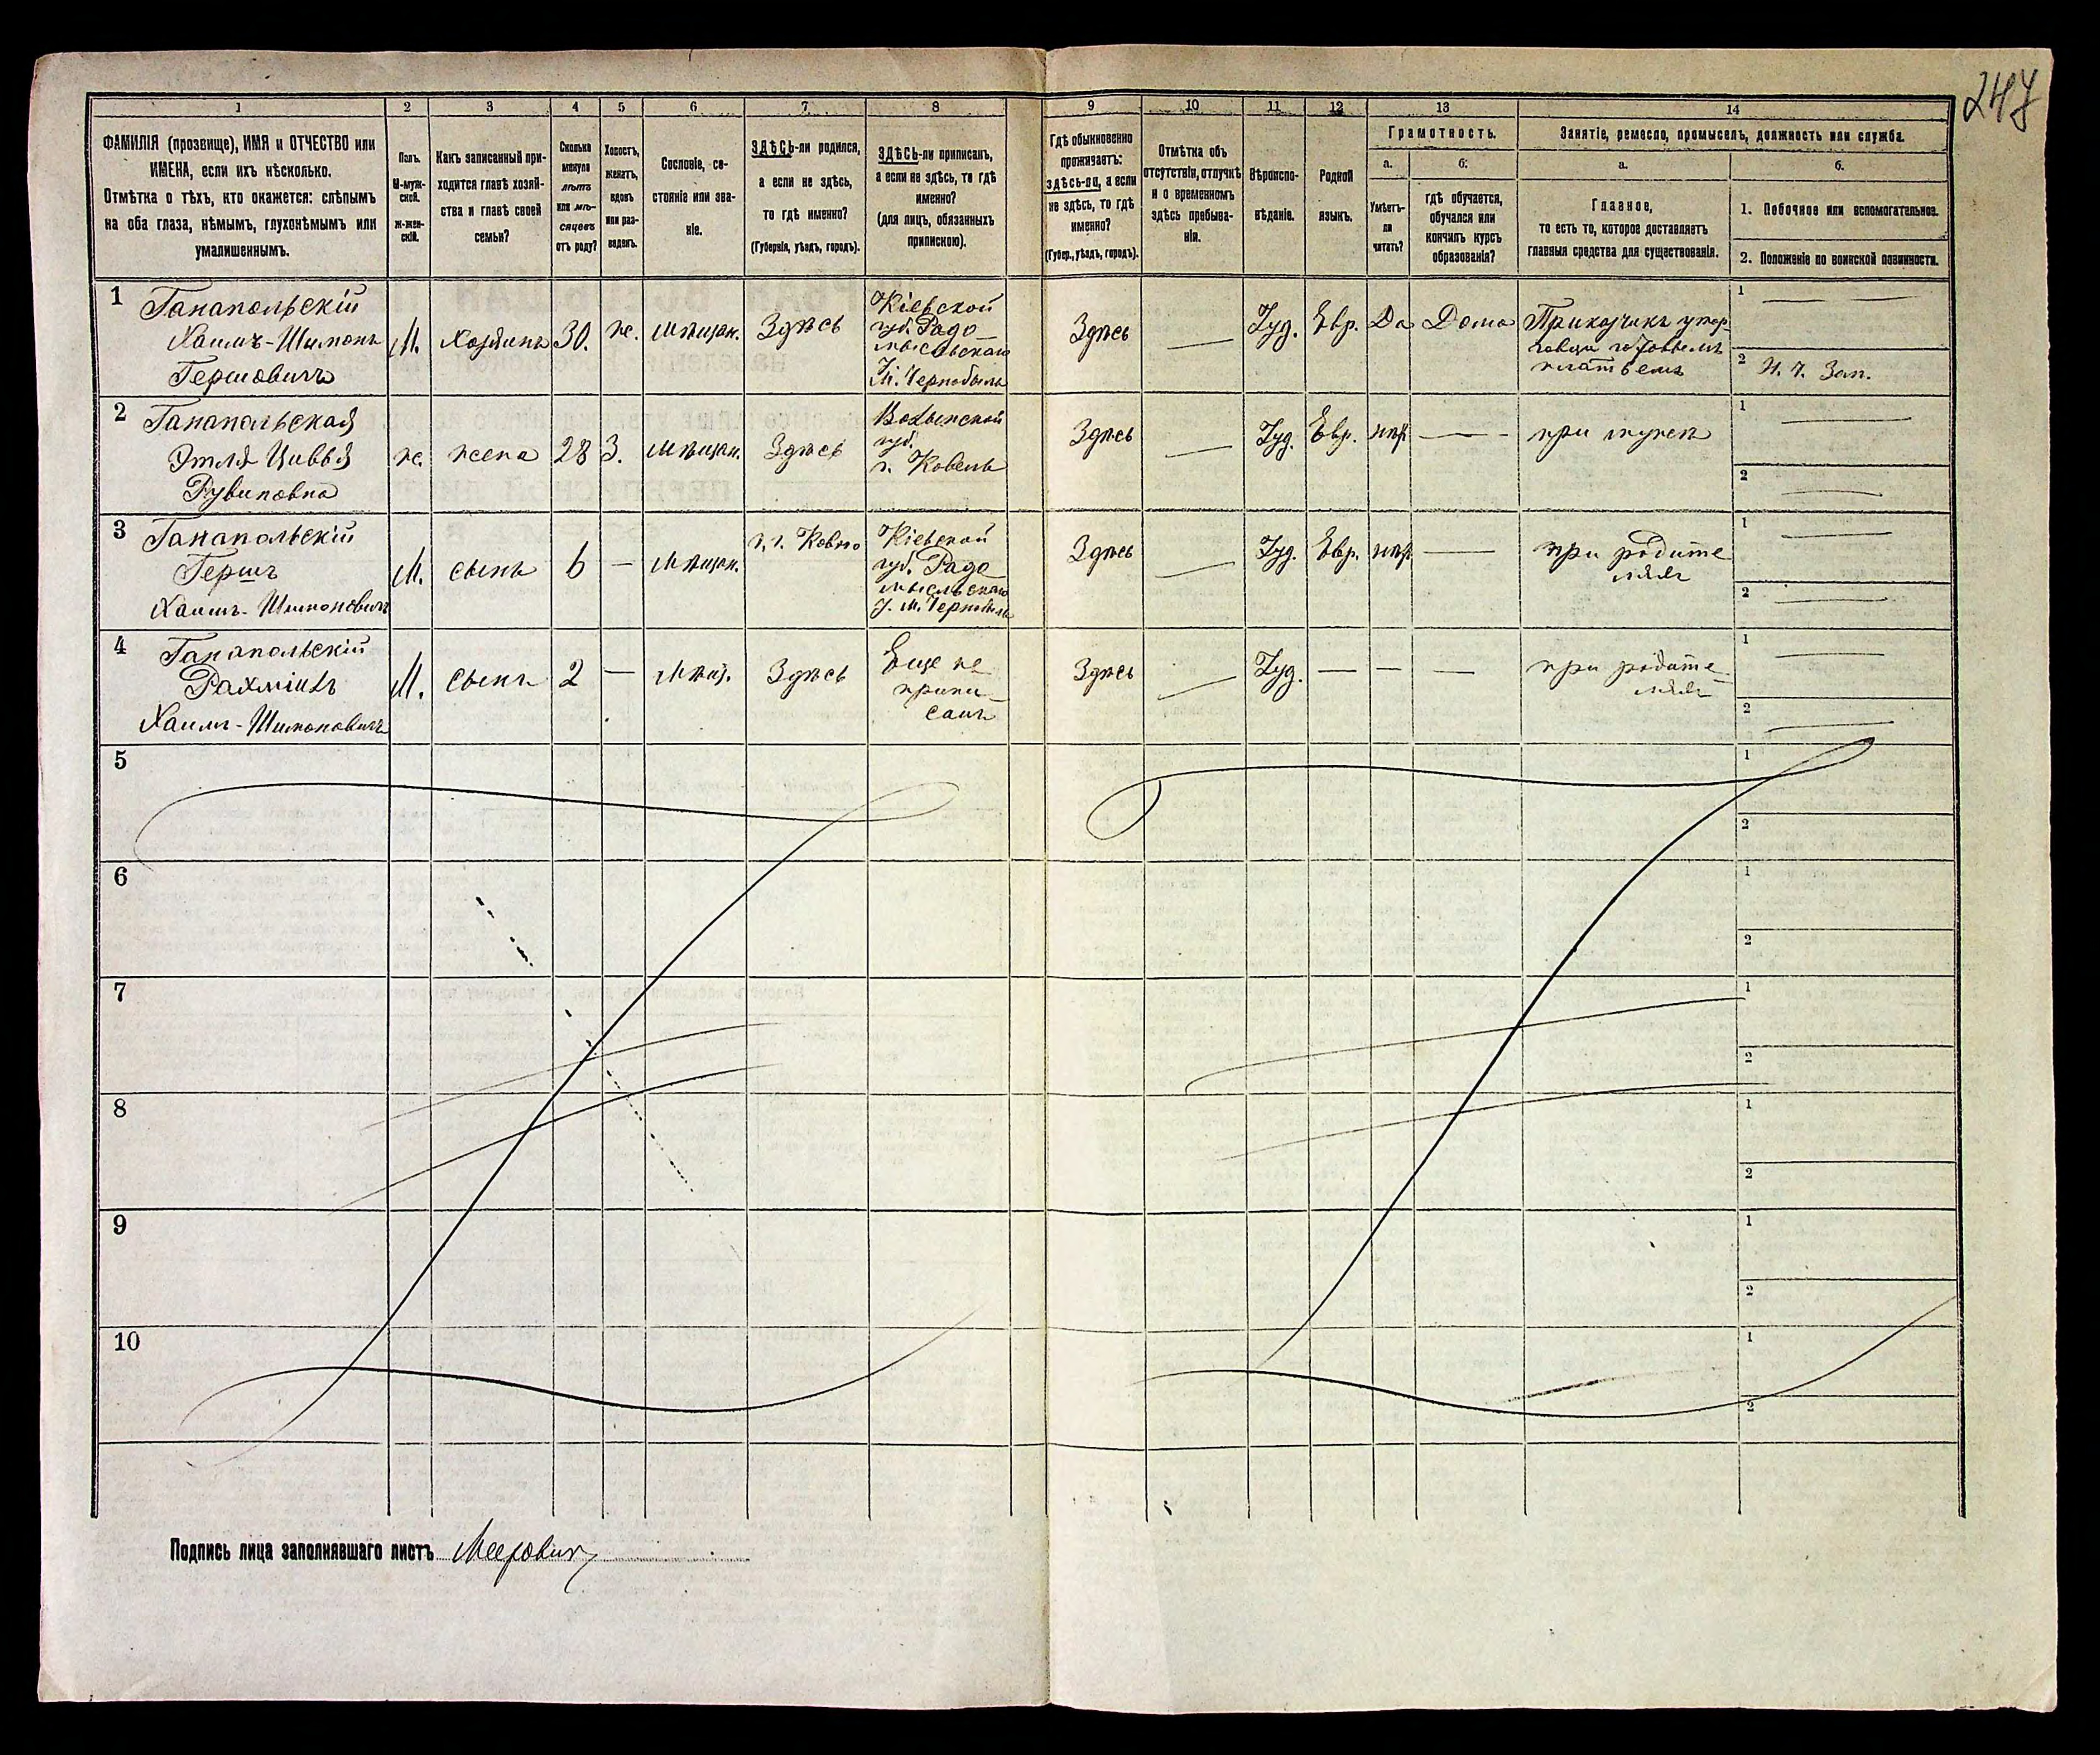 247
1
2
3
4
5
6
7
8
9
10
11
12
13
14
ФАМИЛІЯ (прозвище), ИМЯ и ОТЧЕСТВО или
ИМЕНА, если ихъ нѣсколько.
Отмѣтка о тѣхъ, кто окажется: слѣпымъ
на оба глаза, нѣмымъ, глухонѣмымъ или
умалишеннымъ.
Полъ.
М-муж-
ской.
ж-жен-
скій.
Какъ записанный при-
ходится главѣ хозяй-
ства и главѣ своей
семьи?
Сколько
минуло
лѣтъ
или мѣ-
сяцевъ
отъ роду?
Холостъ,
женатъ,
вдовъ
или раз-
веденъ.
Сословіе, со-
стояніе или зва-
ніе.
ЗДѢСЬ-ли родился,
а если не здѣсь,
то гдѣ именно?
(Губернія, уѣздъ, городъ).
ЗДѢСЬ-ли приписанъ,
а если не здѣсь, то гдѣ
именно?
(для лицъ, обязанныхъ
припискою).
Гдѣ обыкновенно
проживаетъ:
здѣсь-ли, а если
не здѣсь, то гдѣ
именно?
(Губер., уѣздъ, городъ).
Отмѣтка объ
отсутствіи, отлучкѣ
и о временномъ
здѣсь пребыва-
ніи.
Вѣроиспо-
вѣданіе.
Родной
языкъ.
Грамотность.
а.
Умѣетъ-
ли
читать?
б.
гдѣ обучается,
обучался или
кончилъ курсъ
образованія?
Занятіе, ремесло, промыселъ, должность или служба.
а.
Главное,
то есть то, которое доставляетъ
главныя средства для существованія.
б.
1. Побочное или вспомогательное.
2. Положеніе по воинской повинности.
1
Ганапольскій
Хаимъ-Шимонъ
Гершовичъ
М.
Хозяинъ
30.
ж.
Мѣщан.
Здѣсь
Кіевской
губ. Радо
мысльскаго
М. Чернобыль
Здѣсь
Іуд.
Евр.
Да
Дома
Приказчикъ
платьемъ
1
2
Н. Ч. Зап.
2
Ганапольская
Этля Цивья
Рувиновна
ж.
жена
28
З.
Мѣщан.
Здѣсь
Волынской
губ.
г. Ковель
Здѣсь
Іуд.
Евр.
нѣт
при мужѣ
1
2
3
Ганапольскій
Гершъ
Хаимъ-Шимоновичъ
М.
сынъ
6
—
Мѣщан.
Г. г. Ковно
Кіевской
губ. Радо
мысльскаго
у. М. Чернобыль
Здѣсь
Іуд.
Евр.
нѣт
при родите
ляхъ
1
2
4
Ганапольскій
Рахміилъ
Хаимъ-Шимоновичъ
М.
сынъ
2
—
Мѣщ.
Здѣсь
Еще не
припи
санъ
Здѣсь
Іуд.
при родите
ляхъ
1
2
5
1
2
6
1
2
7
1
2
8
1
2
9
1
2
10
1
2
Подпись лица заполнявшаго листъ Мееровичъ